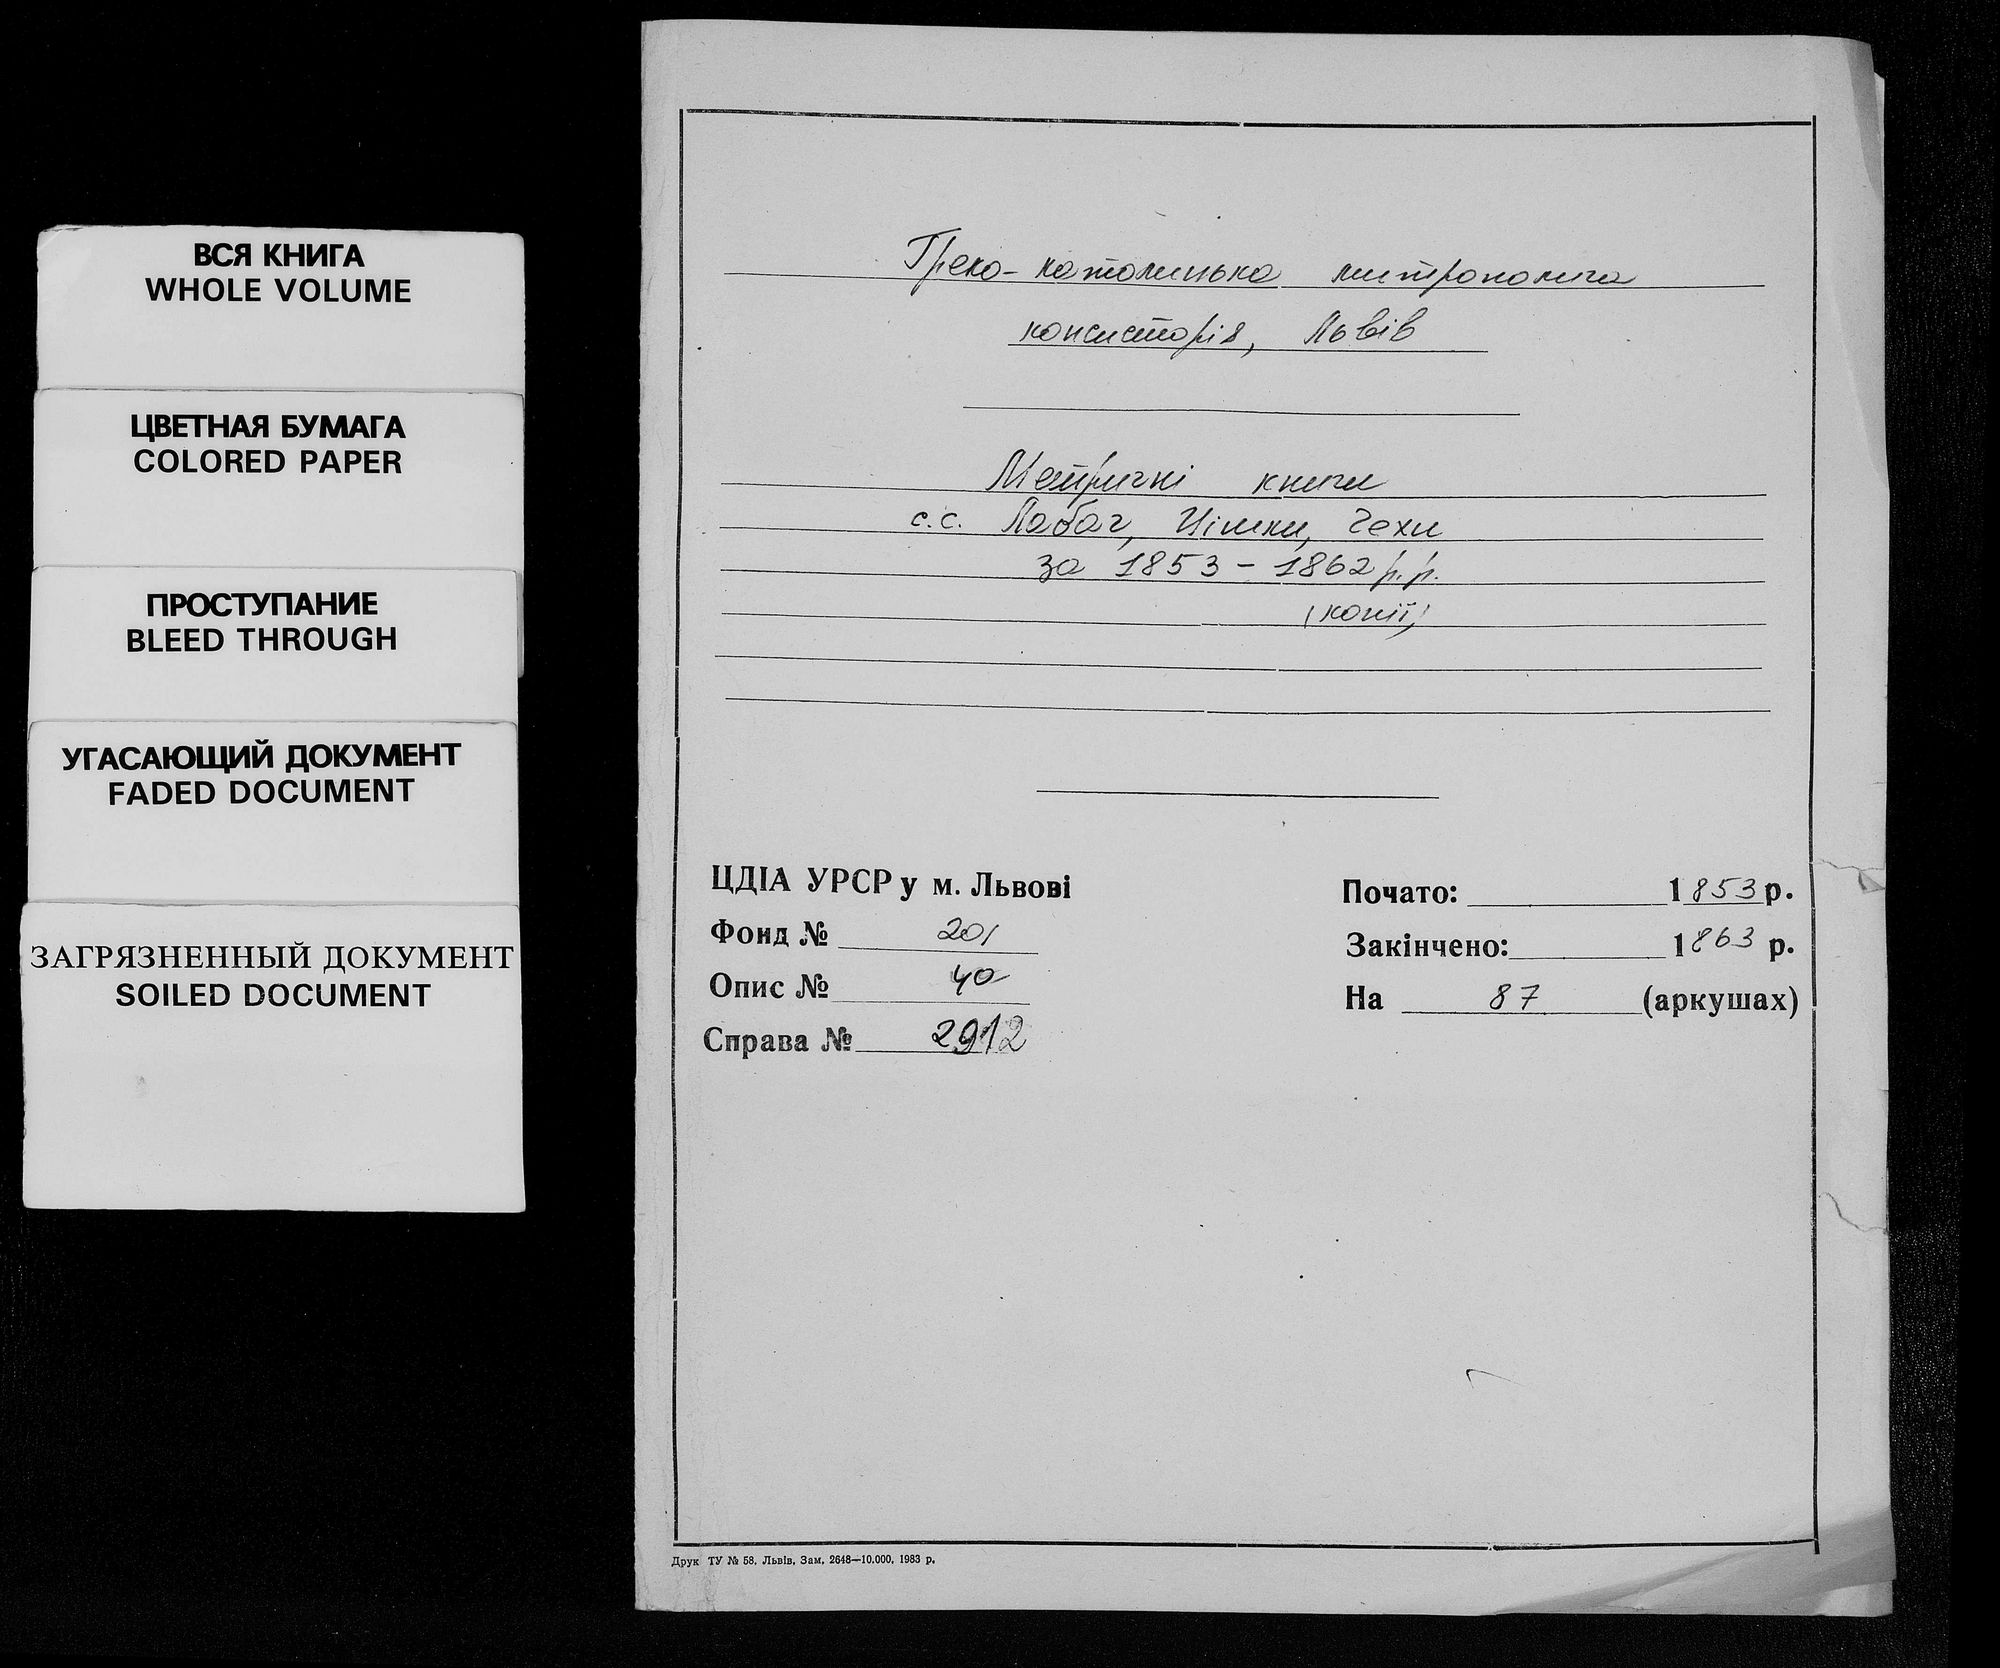 ВСЯ КНИГА
WHOLE VOLUME
ЦВЕТНАЯ БУМАГА
COLORED PAPER
ПРОСТУПАНИЕ
BLEED THROUGH
УГАСАЮЩИЙ ДОКУМЕНТ
FADED DOCUMENT
ЗАГРЯЗНЕННЫЙ ДОКУМЕНТ
SOILED DOCUMENT
Греко-католицька митрополича
консисторія, Львів
Метричні книги
с.с. Лабач, Цішки, Чехи
за 1853-1862 р.р.
(копії)
ЦДІА УРСР у м. Львові
Фонд № 201
Опис № 40
Справа № 2912
Почато: 1853 р.
Закінчено: 1863 р.
На 87 (аркушах)
Друк ТУ № 58, Львів, Зам. 2648—10.000, 1983 р.